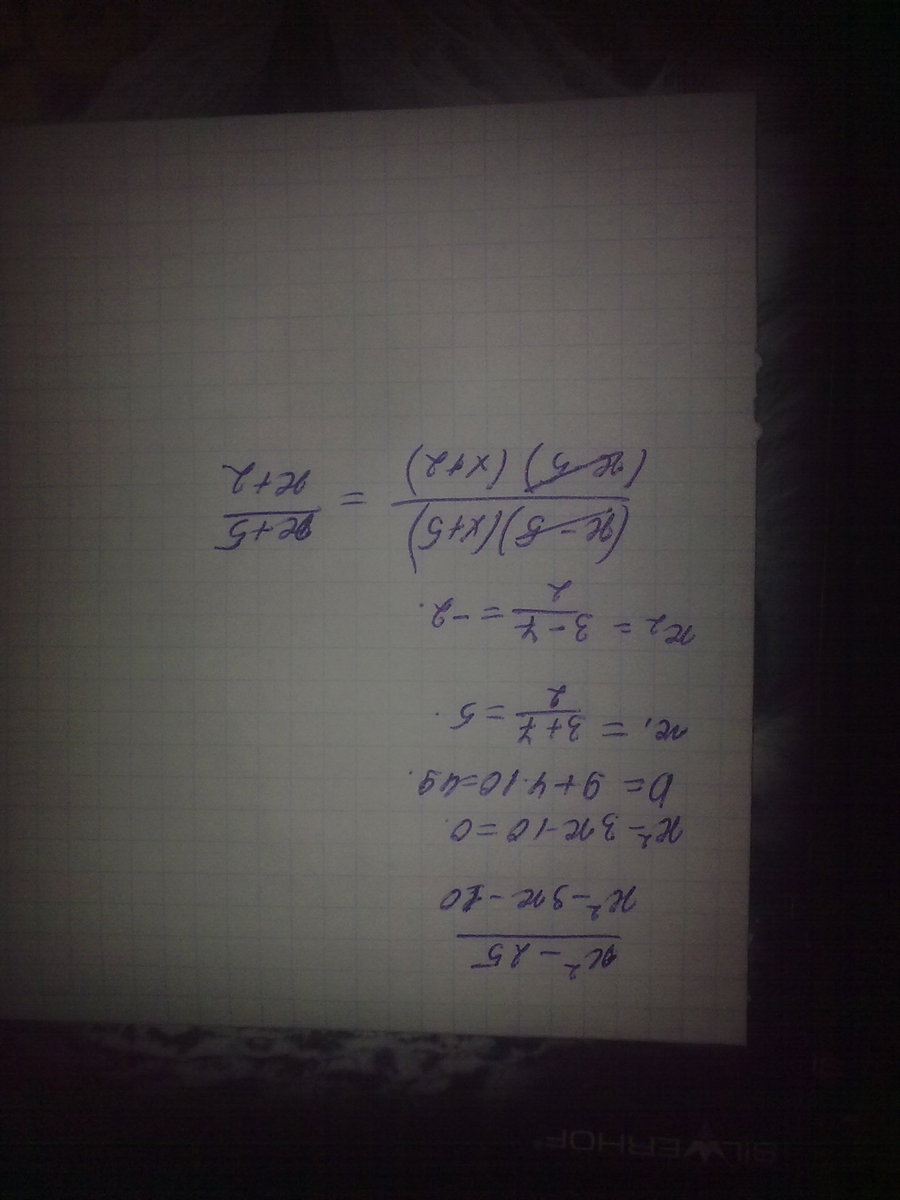 x² - 25
x² - 3x - 10
x² - 3x - 10 = 0.
D = 9 + 4·10 = 49.
x₁ = (3+7)/2 = 5.
x₂ = (3-7)/2 = -2.
(x - 5)(x+5) / (x-5)(x+2) = x+5 / x+2
SILWERHOF